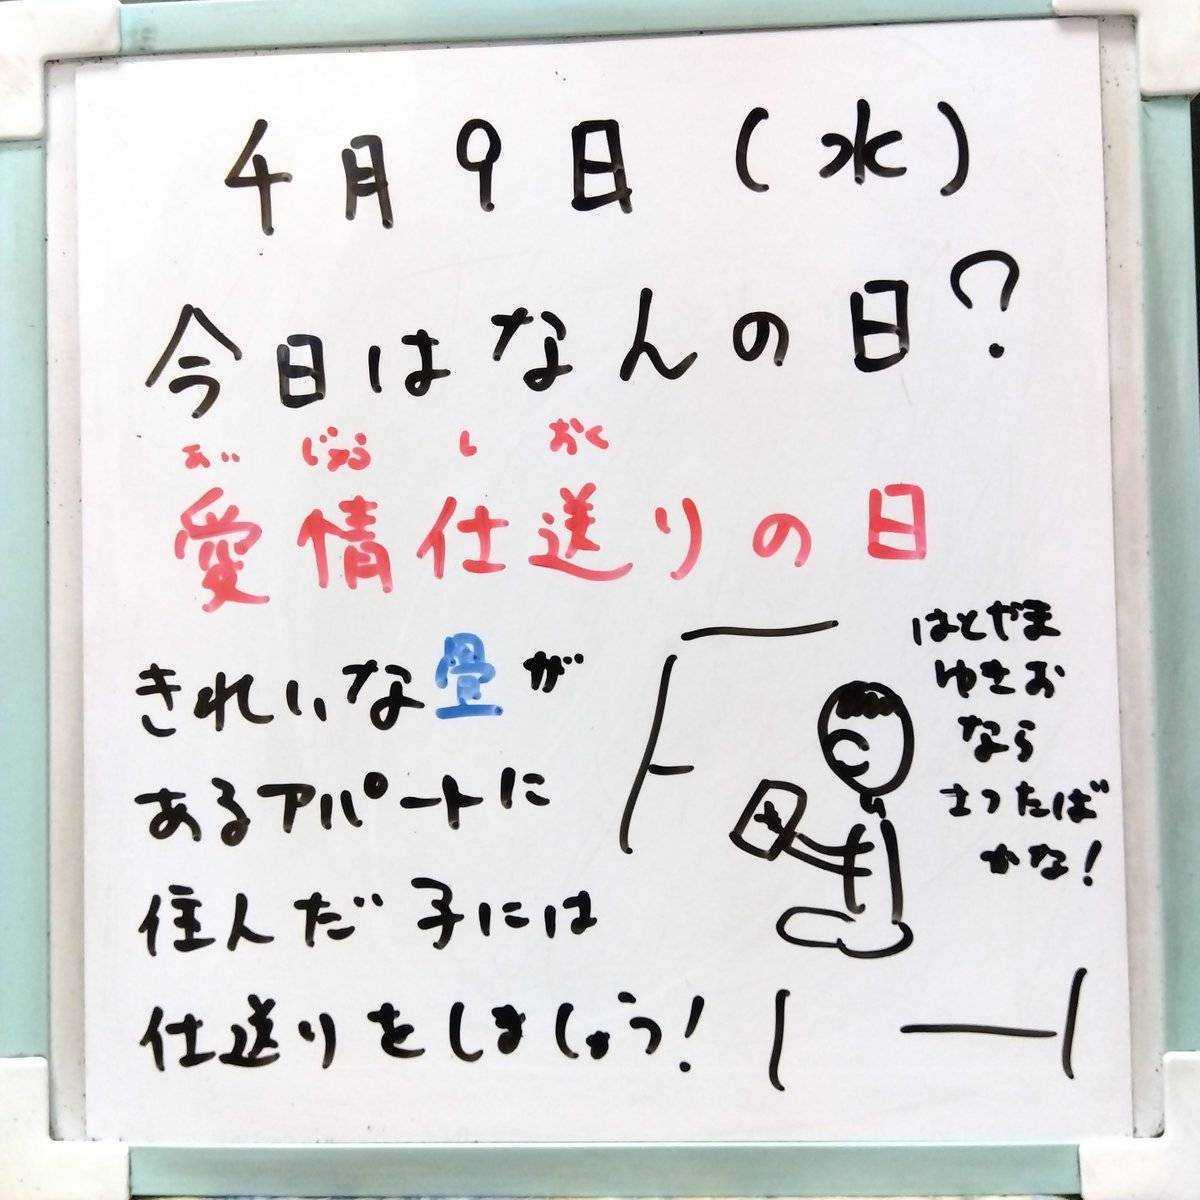 4月9日(水)
今日はなんの日?
あい じょう し おく
愛情仕送りの日
きれいな畳が
あるアパートに
住んだ子には
仕送りをしましょう!
はとやま
ゆきお
なら
さつたば
かな!